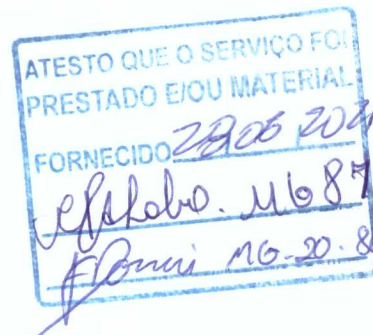 ATESTO QUE O SERVIÇO FOI
PRESTADO E/OU MATERIAL
FORNECIDO 28,06,202
MG 87
MG-20.8